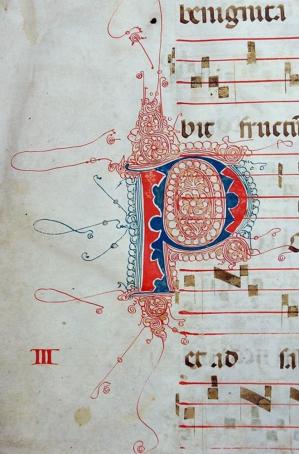 benignita
P
bit fructu
III
et ad sa